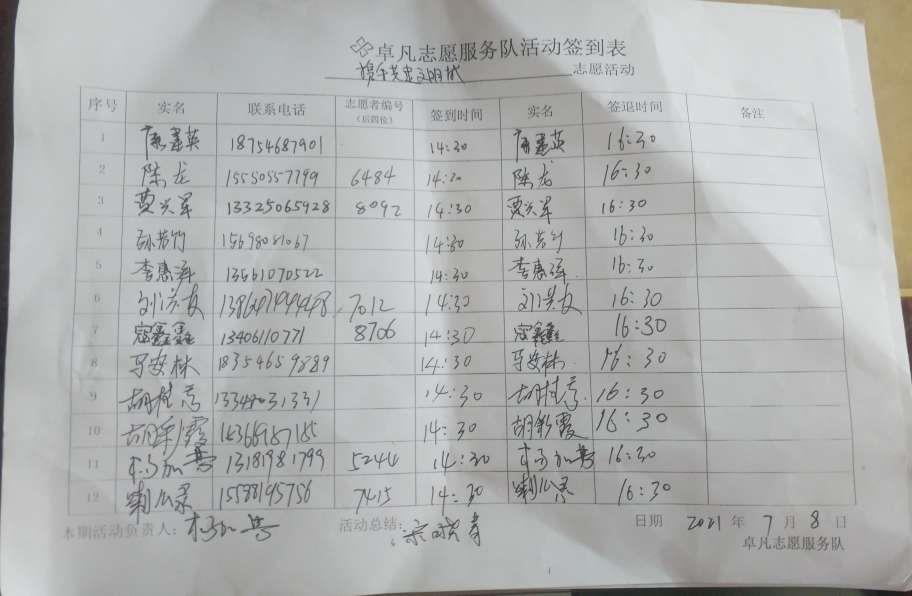 卓凡志愿服务队活动签到表
携手共建文明城 志愿活动
序号 实名 联系电话 志愿者编号 签到时间 实名 签退时间 备注
(后四位)
1 18754687901 14:30 16:30
2 陈龙 15550557799 6484 14:30 陈龙 16:30
3 贾兴军 13325065928 8092 14:30 贾兴军 16:30
4 孙芳竹 15698081067 14:30 孙芳竹 16:30
5 李惠泽 13561070522 14:30 李惠泽 16:30
6 刘洪友 7012 14:30 刘洪友 16:30
7 鑫鑫 13406110771 8706 14:30 鑫鑫 16:30
8 马安林 18354659889 14:30 马安林 16:30
9 胡桂芳 14:30 胡桂芳 16:30
10 胡彩霞 14:30 胡彩霞 16:30
11 杨加芬 13181981799 5244 14:30 杨加芬 16:30
12 15588195756 7415 14:30 16:30
本期活动负责人: 杨加芬 活动总结: 日期 2021 年 7 月 8 日
卓凡志愿服务队